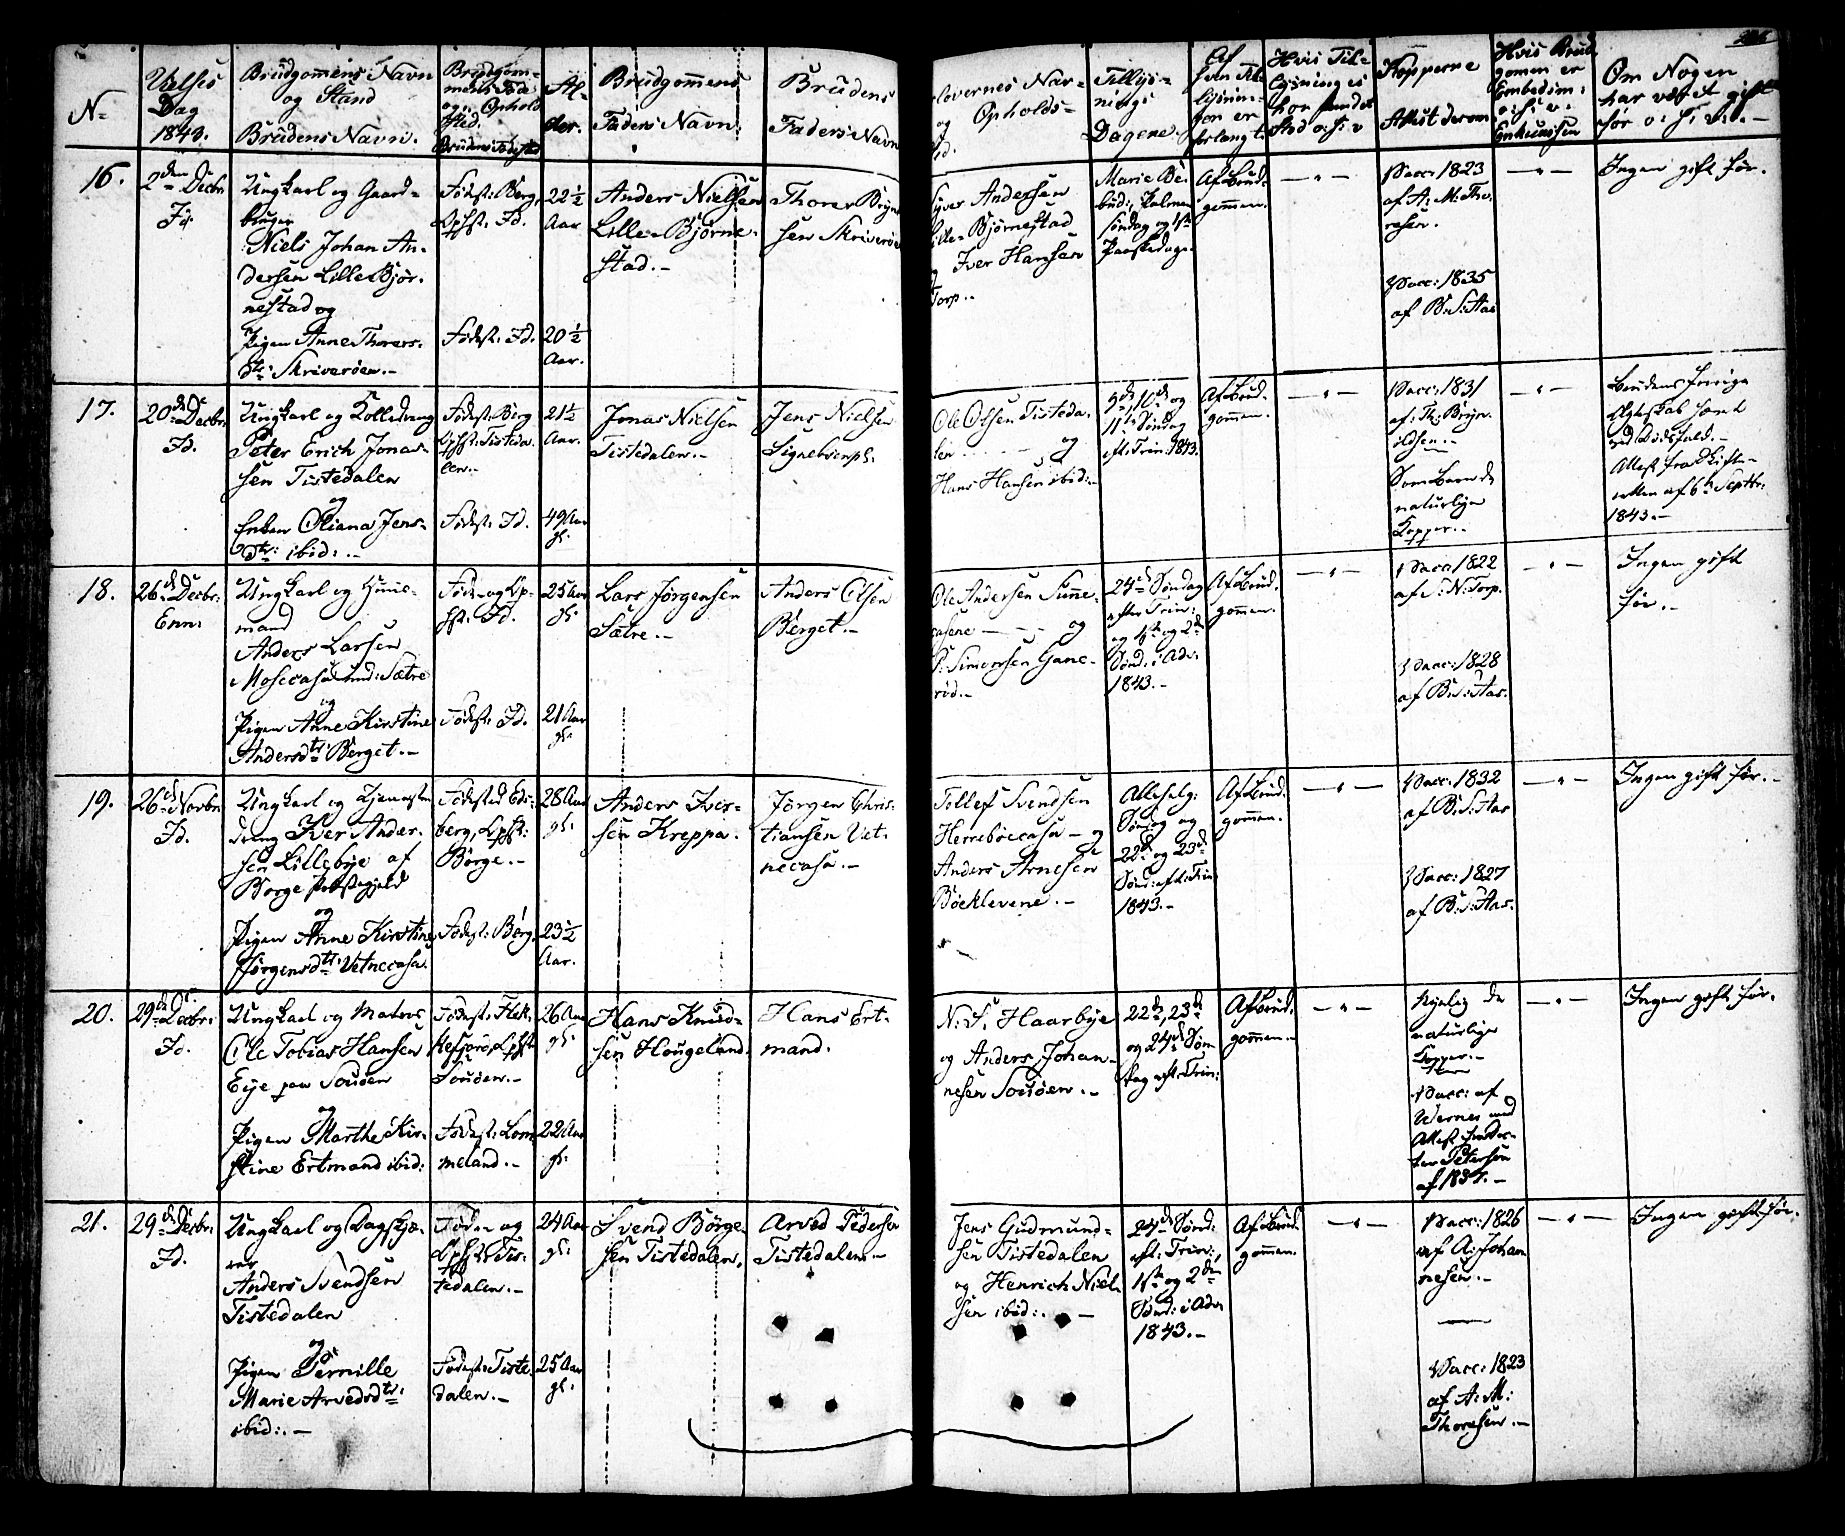 N=
Vielses
Dag
1843.
Brudgommens Navn
og Stand
Brudens Navn.
Brudgom-
mens Føde
og Ophold
sted.
Brudens Fødested
Al-
der.
Brudgommens
Faders Navn.
Brudens
Faders Navn
lovernes Nav-
og Opholds-
Tillys-
nings
Dagene.
Af
hvem Til-
lysnin-
gen er
forlangt.
Hvis Til-
lysning er
Kopperne
Attest derom
Hvis Brud
gomen er
Embedsm:
o: s: v:
Om Nogen
har været gift
før o: s: v: -
16.
2den Decbr
Id.
Ungkarl og Gaard-
bruger
Niels Johan An-
dersen Lille Bjør-
nestad og
Pigen Anne Thorers-
dtr: Skriverøen.-
Fødest: Berg,
Ophst: Id.
Fødest: Id.
22½
Aar
20½
Aar.
Anders Nielsen
Lille-Bjørne-
stad.-
Thorer Bryn
sen Skriverøe
Iver Andersen
Lille-Bjørnestad
Iver Hansen
Torp.-
Marie Be-
bud:, Palme
søndag og 1st
Paaskedag.
Af Brud-
gommen.
Vacc: 1823
af A: M: Tho-
resen.
Vacc: 1835
af B: S: Aas
Ingen gift før.
17.
20de Decbr:
Id.
Ungkarl og Kolledreng
Peter Erich Jonas-
sen Tistedalen
og
Enken Oliana Jens-
dtr: ibid:.-
Fødest: Berg
Ophst: Tisteda-
len.-
Fødest: Id.
21½
Aar.
49 Aar
gl.
Jonas Nielsen
Tistedalen.-
Jens Nielsen
Ole Olsen Tisteda-
len - og
Hans Hansen ibid:-
9de, 10de og
11te Søndag
eft: Trin: 1843.
Af Brud-
gommen.
Vacc: 1831
af: Th: Bryn-
oldsen.-
Som Barn de
naturlige
Kopper.-
Brudens forrige
Ægteskab hævet
ved Dødsfald.-
Attest fra Skifte-
retten af 6te Septbr:
1843.-
18.
26de Decbr:
Enn:
Ungkarl og Huus-
mand
Anders Larsen
Mosecasa und: Sætre
og
Pigen Anne Kirstine
Andersdtr: Berget.-
Føde- og Op-
hst: Id.
Fødest: Id.
25 Aar
gl:
21 Aar
gl:
Lars Jørgensen
Sætre.-
Anders Olsen
Berget.-
Ole Andersen
casene - og
P: Simensen Gane-
rød.-
24de Søndag
efter Trin:
og 1ste og 2de
Sønd: i Adv:
1843.-
Af Brud-
gommen.
Vacc: 1822
af S: N: Torp.
Vacc: 1828
af B: S: Aas.
Ingen gift
før.-
19.
26de Novbr:
Id.
Ungkarl og Tjeneste
dreng Iver Ander-
sen Lillebye af
Borge Præstegjeld
og
Pigen Anne Kirstine
Jørgensdtr: Vetnecasa.
Fødested Eds-
berg, Opst:
Borge.-
Fødest: Berg.
28 Aar
gl:
23½
Aar.
Anders Iver-
sen Kreppa.
Jørgen Chris-
tiansen Vet-
necasa.-
Tollef Svendsen
Herrebøecasa - og
Anders Arnesen
Bøeklevene.-
Allehelg:
Søndag og
22de og 23de
Sønd: eft: Trin
1843.-
Af Brud-
gommen.
Vacc: 1832
af B: S: Aas
Vacc: 1827
af B: S: Aas.
Ingen gift før.-
20.
29de Decbr:
Id.
Ungkarl og Matros
Ole Tobias Hansen
Eye paa Souøen
og
Pigen Marthe Kir-
stine Ertmand ibid:
Fødest: Flek-
kefjord, Opst
Souøen.-
Fødest: Lom
meland.-
26 Aar
gl:
22 Aar
gl:
Hans Knud-
sen Hougeland.
Hans Ert-
mand.
N: S: Haarbye
og Anders Johan-
nesen Souøen.-
22de, 23de
og 24de Søn
dag eft: Trin:
Af Brud-
gommen.-
de
naturlige
Kopper.-
Vacc: af
Wernes med
Attest fra Doc-
tor Petersen
af 1837.-
Ingen gift før.
21.
29de Decbr:
Id.
Ungkarl og Dagskjæ-
rer
Anders Svendsen
Tistedalen
og
Pigen Pernille
Marie Arvedsdtr:
ibid:.-
Føde- og
Ophst: Tis-
tedalen.-
Fødest: Tiste
dalen.-
24 Aar
gl:
25 Aar
gl:
Svend Børge-
sen Tistedalen.
Arved Pedersen
Tistedalen.-
Jens Gudmund-
sen Tistedalen
og Henrich Niel-
sen ibid:. -
24de Sønd:
eft: Trin:,
1ste og 2den
Sønd: i Adv:
1843.-
Af Brud-
gommen.
Vacc: 1826
af A: Johan
nesen.-
Vacc: 1823
af A: M:
Thoresen.-
Ingen gift før.